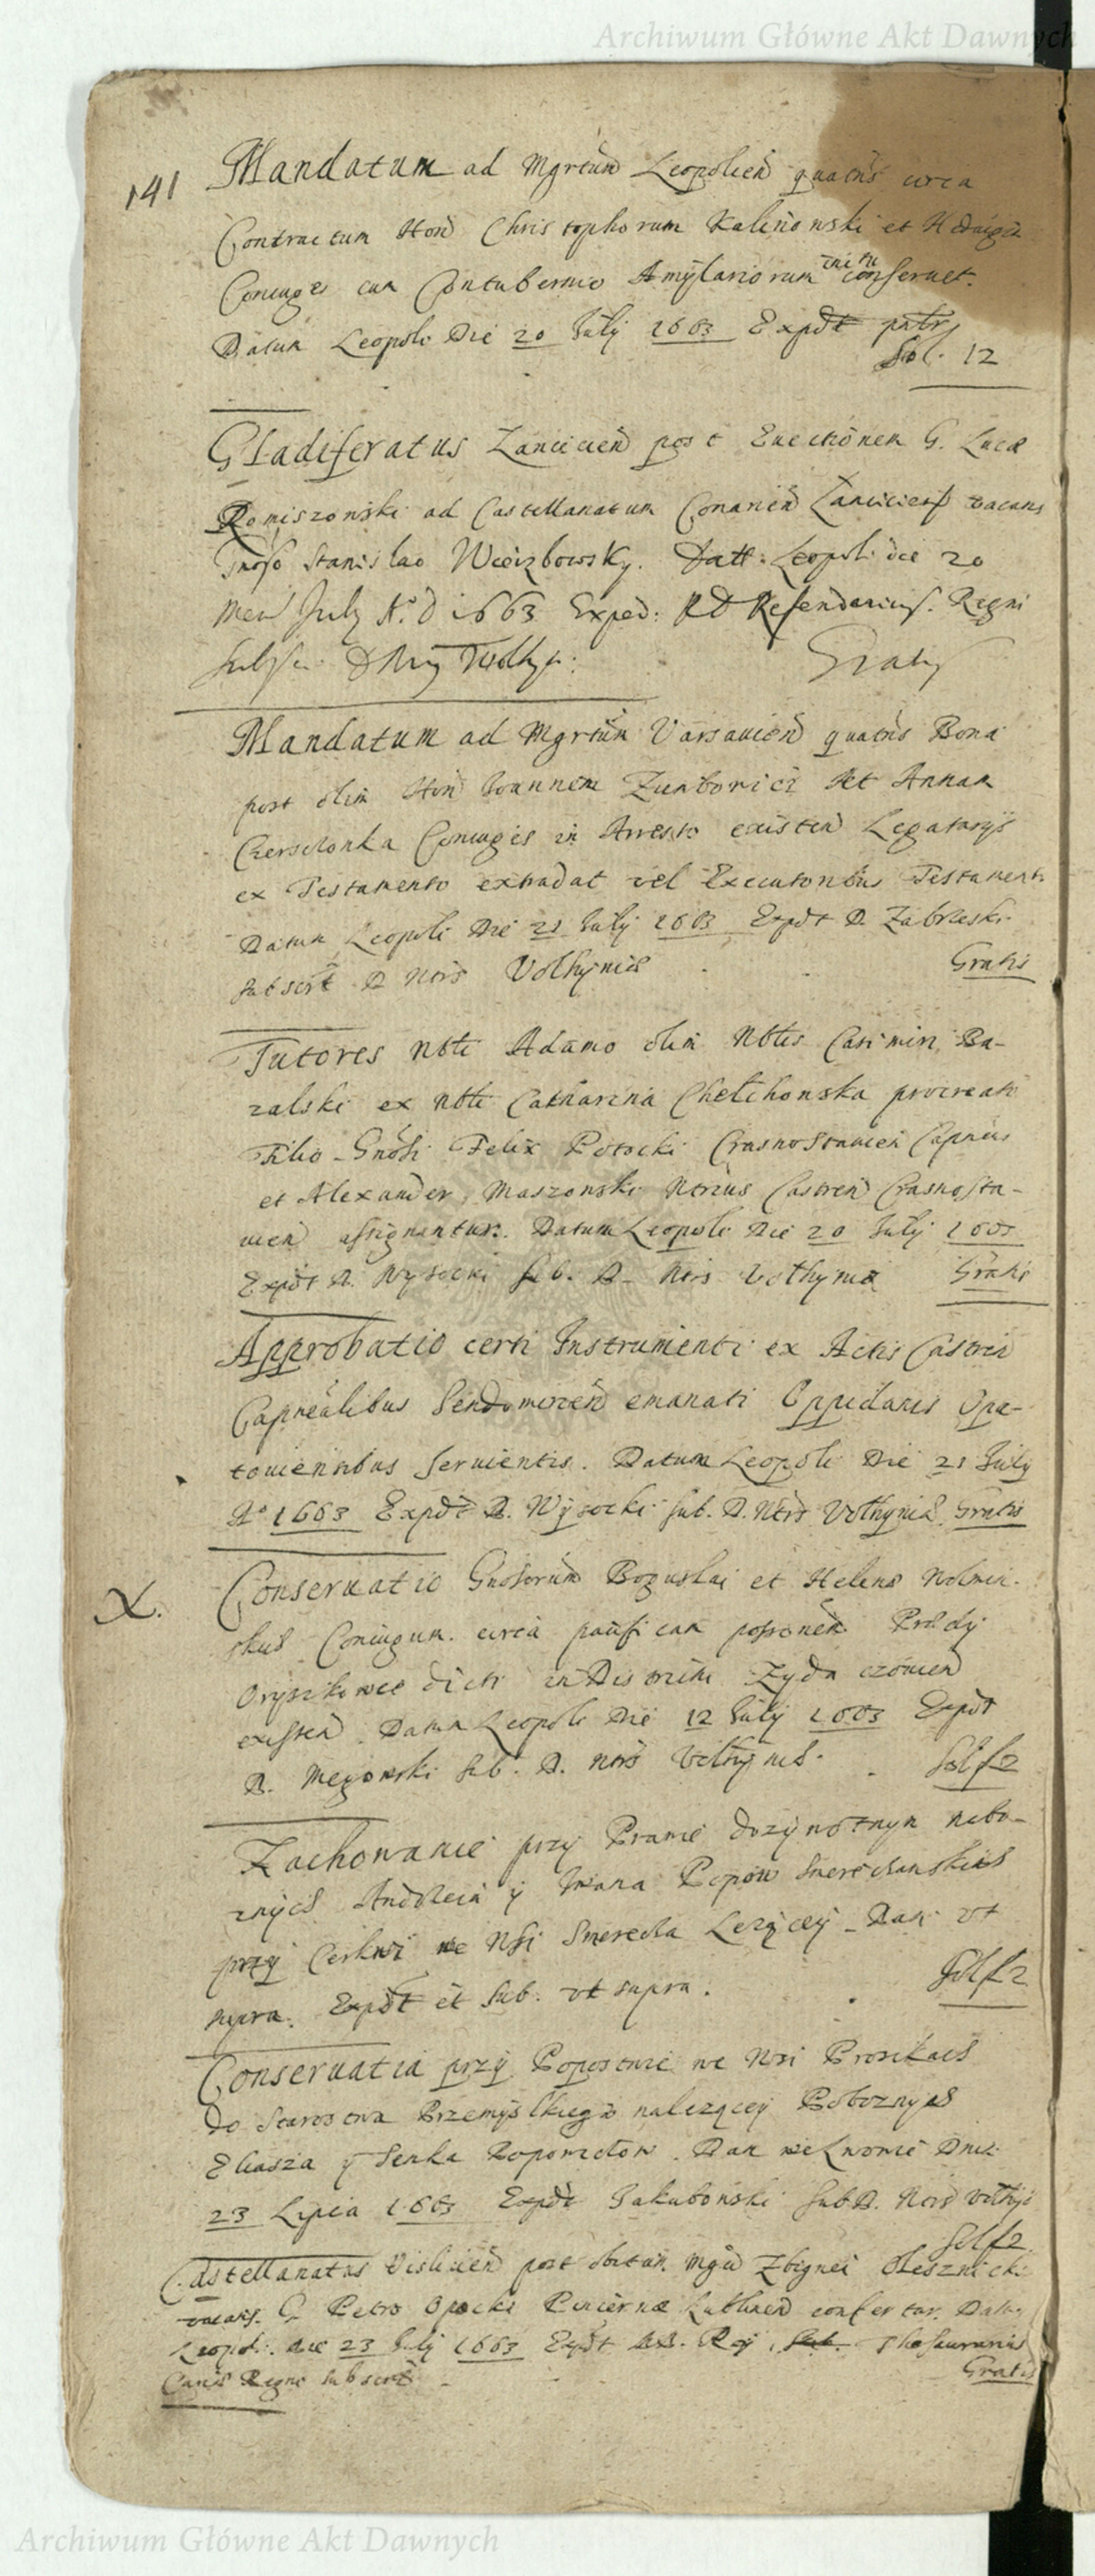 Archiwum Główne Akt Dawnych
141
Mandatum ad Mgrtum Leopolien quatns circa
Contractum Hon Christophorum Kalinowski et Hedvigin
Coniuges cum Contubernio Amylariorum conseruet.
Datum Leopoli Die 20 July 1663 Expdt
Sol. 12
Gladiferatus Lancicien post Euectionem G. Lucae
Romiszowski ad Castellanatum Conarien Lancicien vacans
Gnoso Stanislao Wierzbowsky. Datt: Leopoli die 20
Men July A. D 1663 Exped: RD Referendarius. Regni
Subscr. Gratis
Mandatum ad Mgrtum Varsauien quatns Bona
post olim Hon Joannem Zumbowicz Et Annam
Czerwonka Coniuges in Arresto existen Legatarys
ex Testamento extradat vel Executoribus Testamenti
Datum Leopoli Die 21 July 1663 Expdt D. Zabrzeski
subscrt D Ntrs Volhyniae Gratis
Tutores Nbli Adamo olim Nblis Casimiri Ba-
ralski ex Nbli Catharina Chelchowska procreati
Filio Gnosi Felix Potocki Crasnostauien Capneus
et Alexander Maszowski Ntrius Castren Crasnosta-
uien assignantur. Datum Leopoli Die 20 July 1663
Expdt D. Wysocki sub. D. Ntris Volhyniae Gratis
Approbatio certi Instrumenti ex Actis Castren
Capnealibus Sendomirien emanati Oppidanis Opa-
touiensibus seruientis. Datum Leopoli Die 21 July
A° 1663 Expdt D. Wysocki sub. D. Ntrs Volhyniae Gratis
X.
Conseruatio Gnosorum Boguslai et Helenae Wolmin-
skie Coniugum circa possionem Praedy
Oryszkowce dicti in Districtu Zydaczowien
existen Datum Leopoli Die 12 July 1663 Expdt
D. Mezowski sub. D. Ntrs Volhyniae. Sol f 2
Zachowanie przy Prawie dozywotnym nabo-
znych Andrzeia y Iwana Popow Smereczanskich
przy Cerkwi we Wsi Smerecka Lezącey Dan vt
supra. Expdt et sub. vt supra. Sol f 2
Conseruatia przy Popostwie we Wsi Prosikach
do Starostwa Przemyslkiego nalezącey Poboznych
Eliasza y Senka Popowiczow. Dan we Lwowie Dnia
23 Lipca 1663 Expdt Jakubowski sub D. Ntrs Volhyn
Sol f 2
Castellanatus Vislicien post obitum Mgci Zbignei Olesznicki
vacans. G. Petro Opocki Pincernae Lublinen confertur. Datum
Leopoli. die 23 July 1663 Expdt Thesaurarius
Curiae Regni subscrt Gratis
Archiwum Główne Akt Dawnych